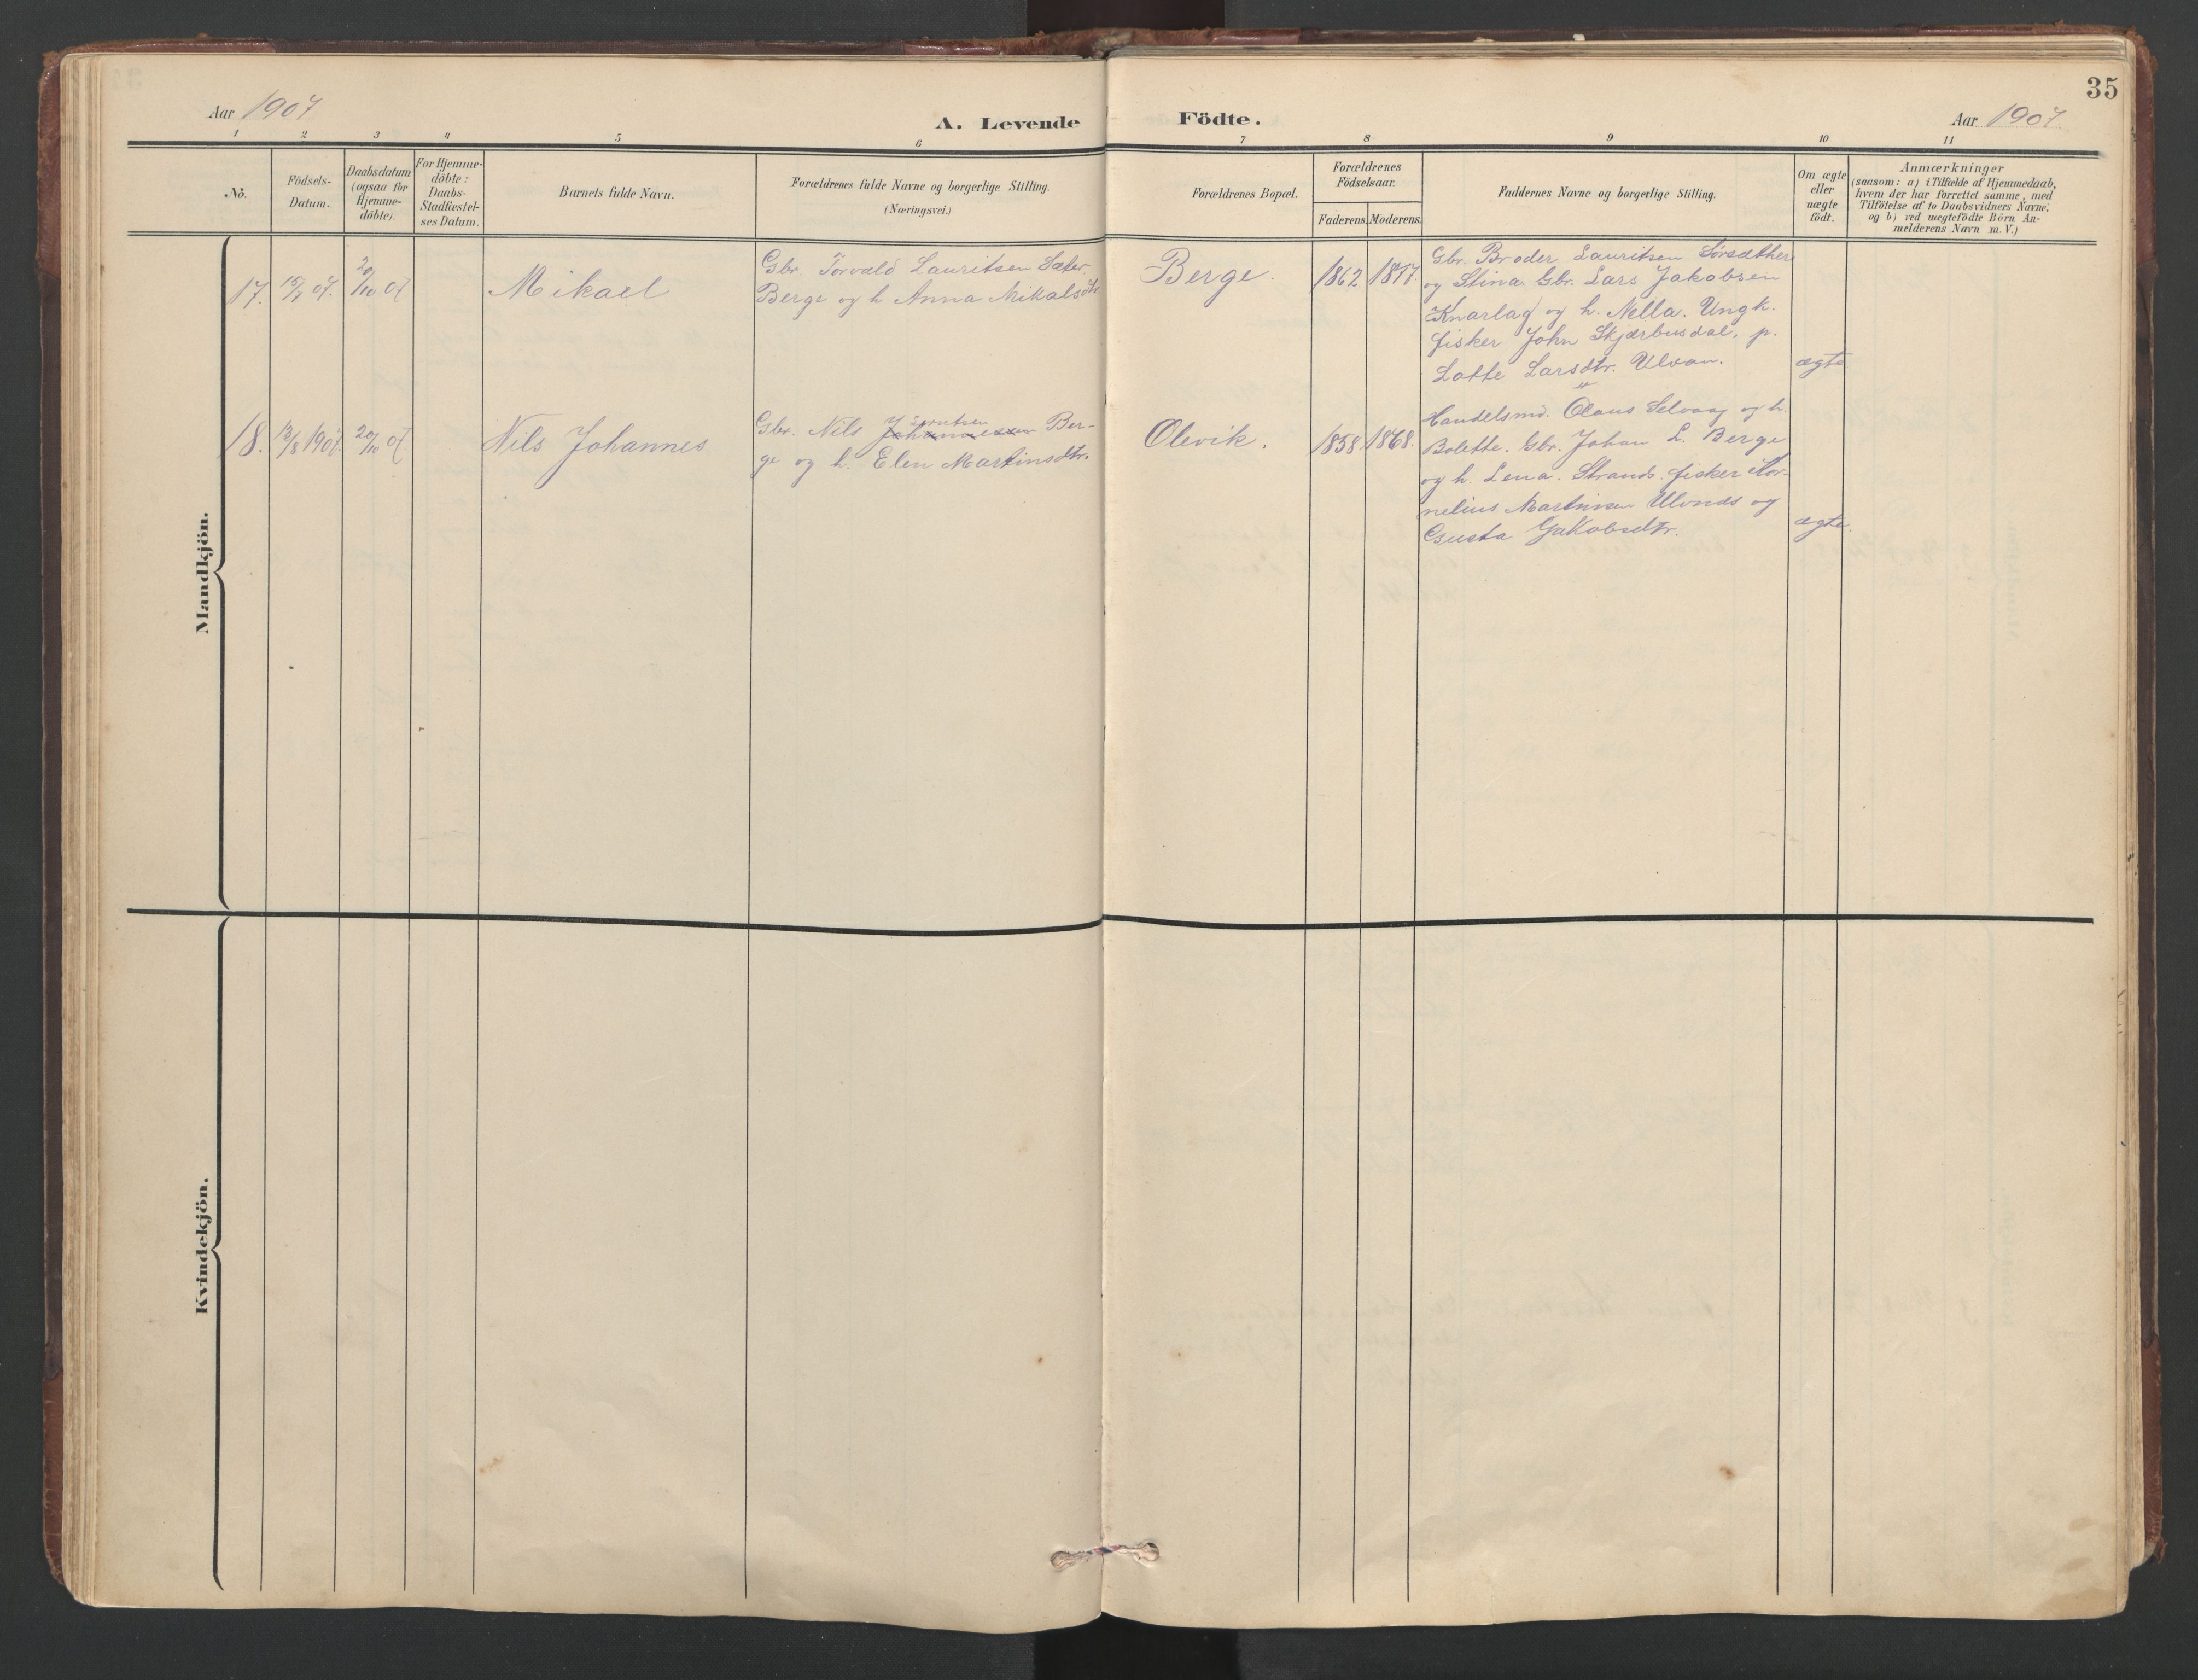 35
Aar 1907
A. Levende Födte.
Aar 1907.
1 2 3 4 5 6 7 8 9 10 11
Nô.
Födsels-
Datum.
Daabsdatum
(ogsaa for
Hjemme-
döbte).
For Hjemme-
döbte:
Daabs-
Stadfæstel-
ses Datum.
Barnets fulde Navn.
Forældrenes fulde Navne og borgerlige Stilling.
(Næringsvei.)
Forældrenes Bopæl.
Forældrenes
Födselsaar.
Faderens. Moderens.
Faddernes Navne og borgerlige Stilling.
Om ægte
eller
uægte
födt.
Anmærkninger
(saasom: a) i Tilfælde af Hjemmedaab,
hvem der har forrettet samme, med
Tilföielse af to Daabsvidners Navne,
og b) ved uægtefödte Börn An-
melderens Navn m. V.)
Mandkjön.
17.
07.
20/10 07
Mikael
Gbr. Torvald Lauritsen Sæter.
Berge og h. Anna Mikalsdtr.
Berge.
1862
Gbr. Broder Lauritsen
og Stina. Gbr. Lars Jakobsen
Knarlag og h. Nella. Ungk.
fisker John Skjærbusdal, p.
Lotte Larsdtr. Ulvan.
ægte
18.
13/8 1907.
20/10 07
Nils Johannes
Gbr. Nils Johannessen Ber-
ge og h. Elen Martinsdtr.
Olevik.
1858
1868.
Handelsmd. Olaus Selvaag og h.
Bolette. Gbr. Johan L. Berge
og h. Lena. Strands. fisker Kor-
nelius Martinsen Ulvnds og
Gusta Jakobsdtr.
ægte.
Kvindekjön.